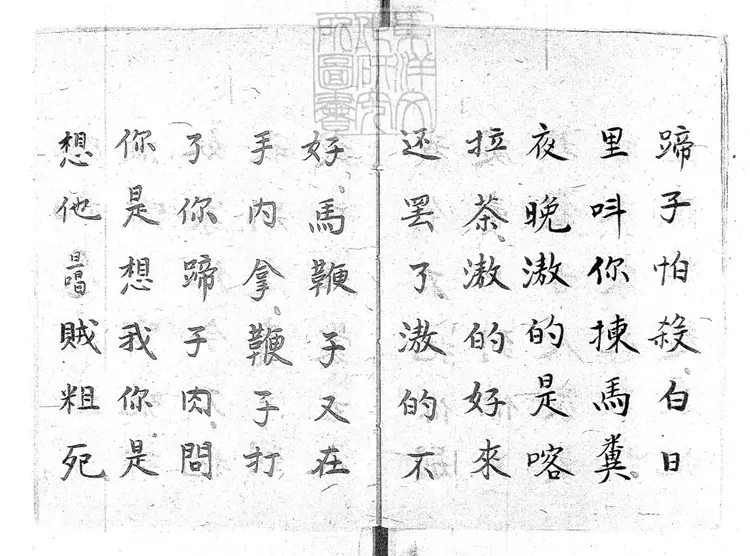 蹄子怕殺白日
里呌你揀馬糞
夜晚滶的是喀
拉茶滶的好來
还罢了滶的不
好馬鞭子又在
手内拿鞭子打
了你蹄子肉問
你是想我你是
想他旦唱賊粗死
東洋文
化研究
所圖書